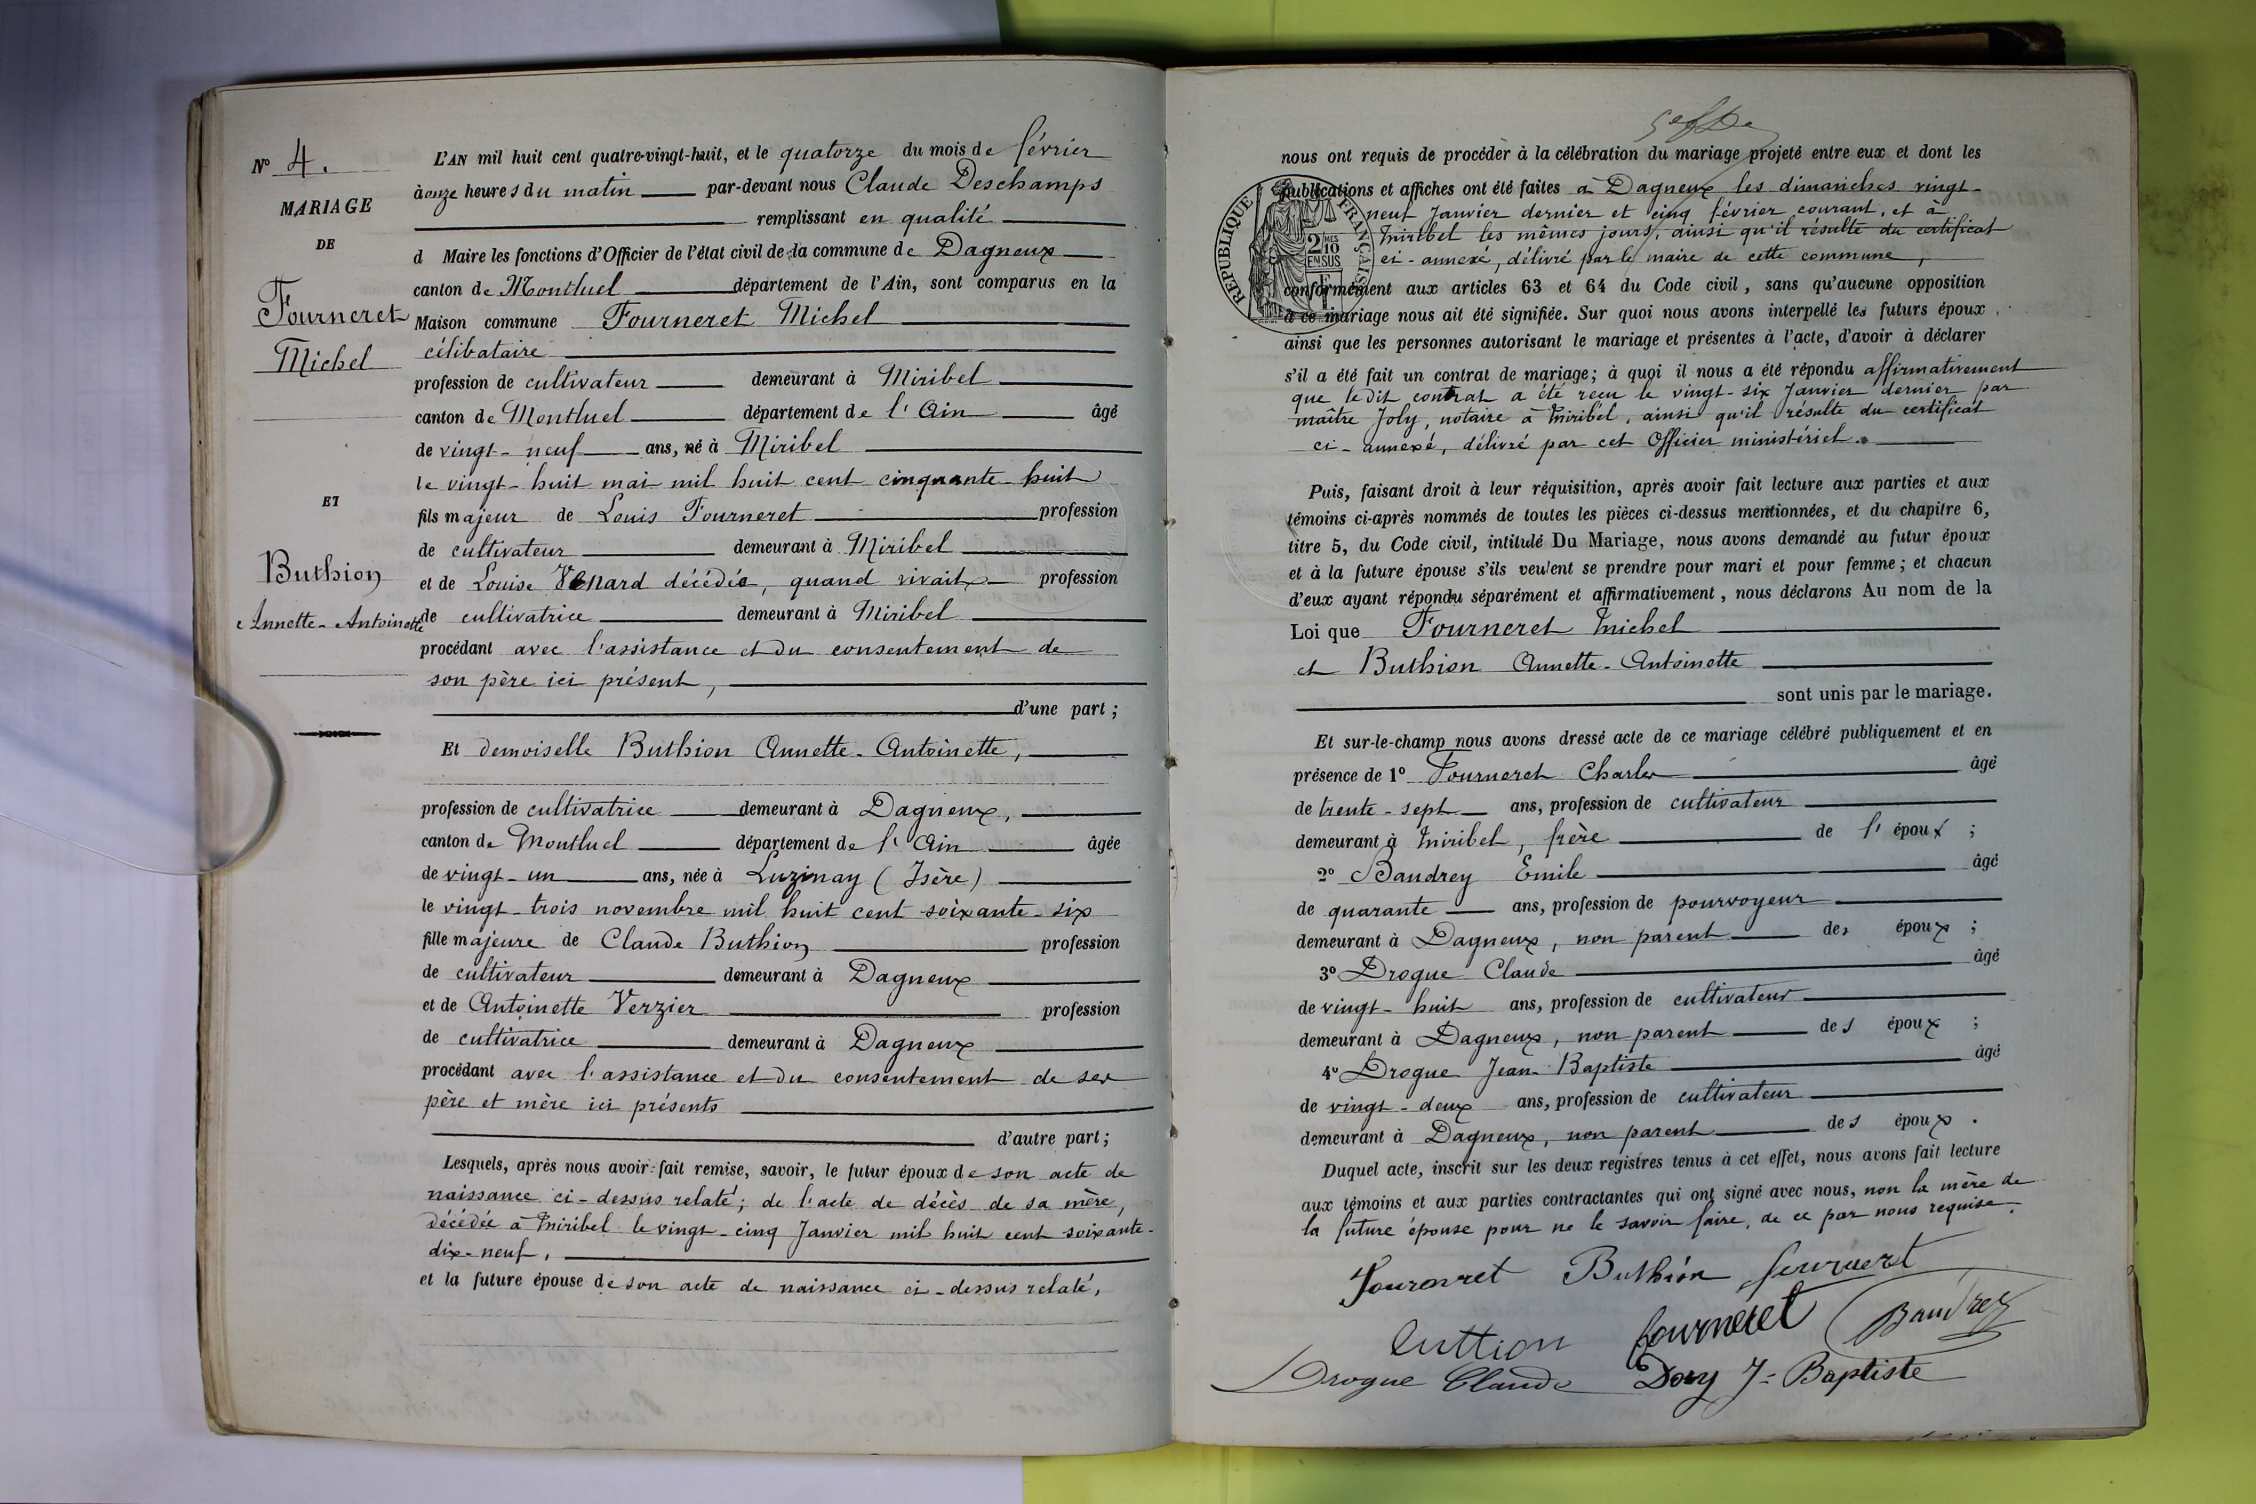 N° 4.
MARIAGE
DE
Fourneret
Michel
ET
Buthion
Annette-Antoinette
L'AN mil huit cent quatre-vingt-huit, et le quatorze du mois de février
à onze heures du matin par-devant nous Claude Deschamps
remplissant en qualité
d Maire les fonctions d'Officier de l'état civil de la commune de Dagneux
canton de Montluel département de l'Ain, sont comparus en la
Maison commune Fourneret Michel
célibataire
profession de cultivateur demeurant à Miribel
canton de Montluel département de l'Ain âgé
de vingt-neuf ans, né à Miribel
le vingt-huit mai mil huit cent cinquante-huit
fils majeur de Louis Fourneret profession
de cultivateur demeurant à Miribel
et de Louise Venard décédée, quand vivait profession
de cultivatrice demeurant à Miribel
procédant avec l'assistance et du consentement de
son père ici présent,
d'une part ;
Et demoiselle Buthion Annette-Antoinette,
profession de cultivatrice demeurant à Dagneux,
canton de Montluel département de l'Ain âgée
de vingt-un ans, née à Luzinay (Isère)
le vingt-trois novembre mil huit cent soixante-six
fille majeure de Claude Buthion profession
de cultivateur demeurant à Dagneux
et de Antoinette Verzier profession
de cultivatrice demeurant à Dagneux
procédant avec l'assistance et du consentement de ses
père et mère ici présents
d'autre part ;
Lesquels, après nous avoir fait remise, savoir, le futur époux de son acte de
naissance ci-dessus relaté ; de l'acte de décès de sa mère,
décédée à Miribel le vingt-cinq Janvier mil huit cent soixante-
dix-neuf,
et la future épouse de son acte de naissance ci-dessus relaté,
nous ont requis de procéder à la célébration du mariage projeté entre eux et dont les
publications et affiches ont été faites à Dagneux les dimanches vingt-
neuf Janvier dernier et cinq février courant, et à
Miribel les mêmes jours, ainsi qu'il résulte du certificat
ci-annexé, délivré par le maire de cette commune,
RÉPUBLIQUE FRANÇAISE
2 MES
10
EN SUS
conformément aux articles 63 et 64 du Code civil, sans qu'aucune opposition
à ce mariage nous ait été signifiée. Sur quoi nous avons interpellé les futurs époux
ainsi que les personnes autorisant le mariage et présentes à l'acte, d'avoir à déclarer
s'il a été fait un contrat de mariage ; à quoi il nous a été répondu affirmativement
que ledit contrat a été reçu le vingt-six Janvier dernier par
maître Joly, notaire à Miribel, ainsi qu'il résulte du certificat
ci-annexé, délivré par cet Officier ministériel.
Puis, faisant droit à leur réquisition, après avoir fait lecture aux parties et aux
témoins ci-après nommés de toutes les pièces ci-dessus mentionnées, et du chapitre 6,
titre 5, du Code civil, intitulé Du Mariage, nous avons demandé au futur époux
et à la future épouse s'ils veulent se prendre pour mari et pour femme ; et chacun
d'eux ayant répondu séparément et affirmativement, nous déclarons Au nom de la
Loi que Fourneret Michel
et Buthion Annette-Antoinette
sont unis par le mariage.
Et sur-le-champ nous avons dressé acte de ce mariage célébré publiquement et en
présence de 1° Fourneret Charles âgé
de trente-sept ans, profession de cultivateur
demeurant à Miribel, frère de l'époux ;
2° Baudrey Emile âgé
de quarante ans, profession de pourvoyeur
demeurant à Dagneux, non parent des époux ;
3° Drogue Claude âgé
de vingt-huit ans, profession de cultivateur
demeurant à Dagneux, non parent des époux ;
4° Drogue Jean-Baptiste âgé
de vingt-deux ans, profession de cultivateur
demeurant à Dagneux, non parent des époux.
Duquel acte, inscrit sur les deux registres tenus à cet effet, nous avons fait lecture
aux témoins et aux parties contractantes qui ont signé avec nous, non la mère de
la future épouse pour ne le savoir faire, de ce par nous requise.
Fourneret Buthion fourneret
buttion fourneret Baudrey
Drogue Claude J-Baptiste